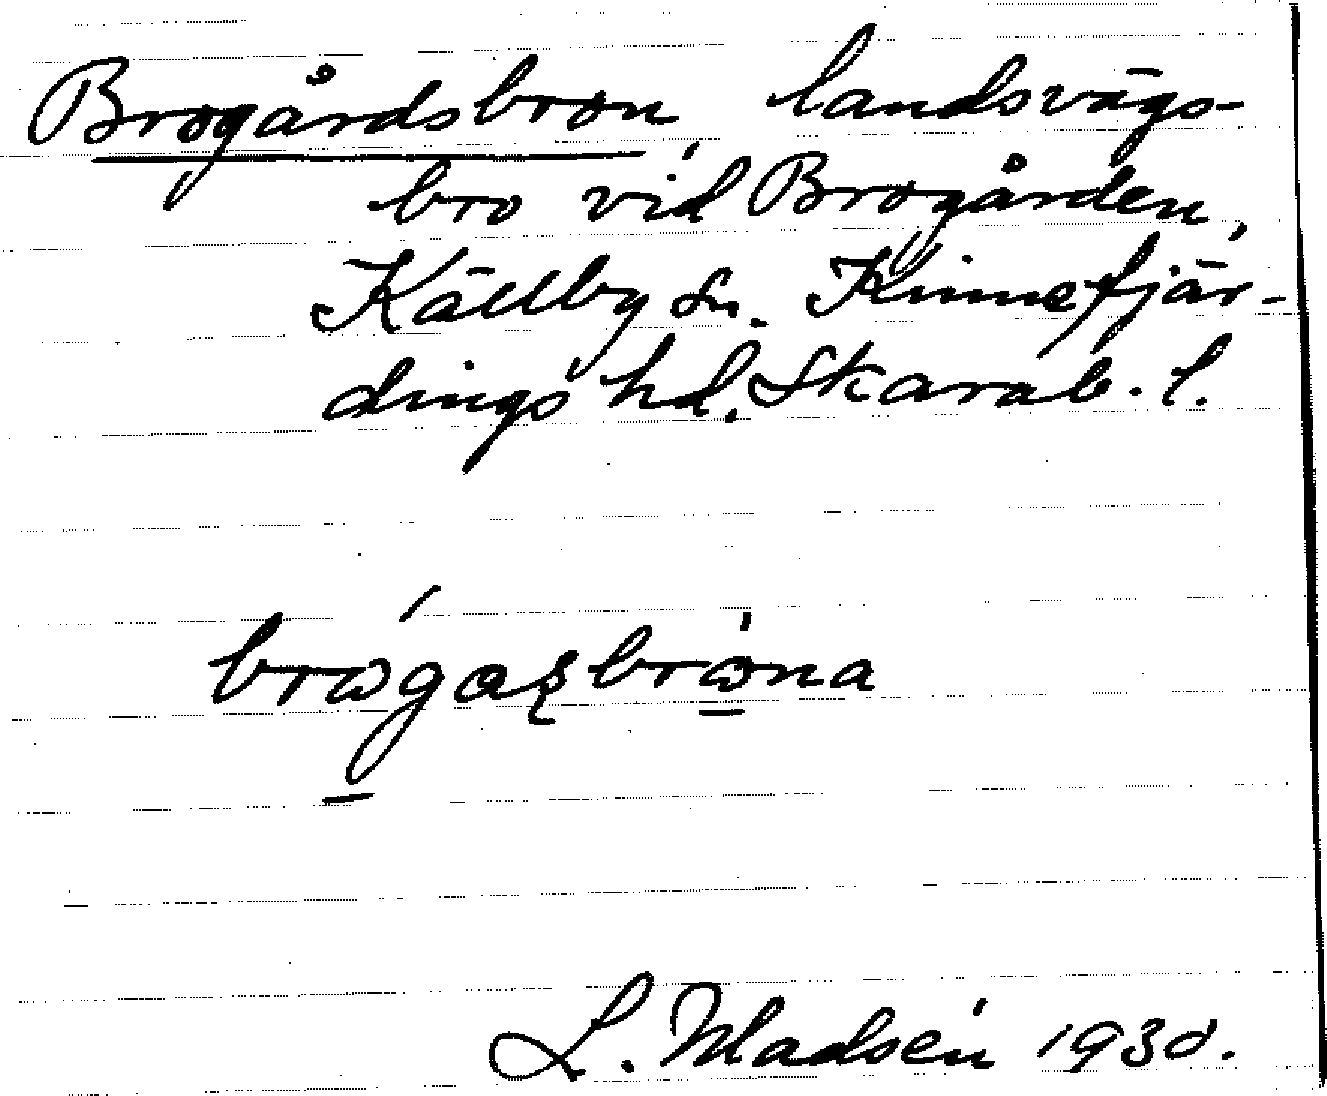 Brogårdsbron, landsvägs-
bro vid Brogården,
Källby sn. Kinnefjär-
dings hd. Skarab. l.
brωgaʂbrωna
L. Madsén 1930.